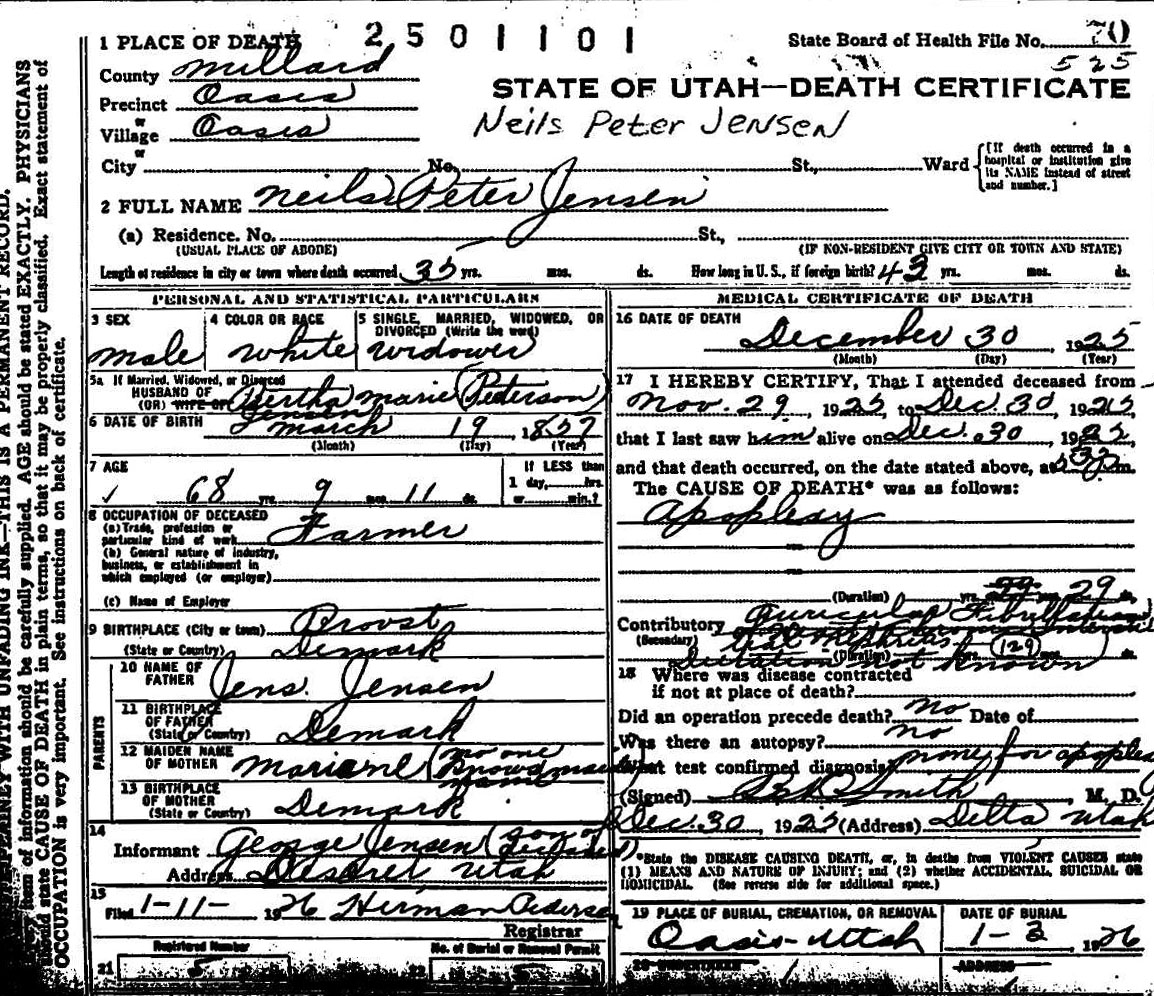 1 PLACE OF DEATH 2501101 State Board of Health File No. 70
525
County Millard
STATE OF UTAH—DEATH CERTIFICATE
Precinct Oasis
or
Village Oasis
Neils Peter Jensen
or
City No. St., Ward [If death occurred in a hospital or institution give its NAME instead of street and number.]
2 FULL NAME Neils Peter Jensen
(a) Residence. No. St.,
(USUAL PLACE OF ABODE) (IF NON-RESIDENT GIVE CITY OR TOWN AND STATE)
Length of residence in city or town where death occurred 35 yrs. mos. ds. How long in U. S., if foreign birth? 43 yrs. mos. ds.
PERSONAL AND STATISTICAL PARTICULARS
3 SEX 4 COLOR OR RACE 5 SINGLE, MARRIED, WIDOWED, OR DIVORCED (Write the word)
male white widower
5a If Married, Widowed, or Divorced
HUSBAND OF
(OR) WIFE OF Bertha Marie (Peterson)
Jensen
6 DATE OF BIRTH March 19 1857
(Month) (Day) (Year)
7 AGE If LESS than
1 day, hrs.
68 yrs. 9 mos. 11 ds. or min.?
8 OCCUPATION OF DECEASED
(a) Trade, profession or
particular kind of work Farmer
(b) General nature of industry,
business, or establishment in
which employed (or employer)
(c) Name of Employer
9 BIRTHPLACE (City or town) Provst
(State or Country) Demark
PARENTS
10 NAME OF
FATHER Jens. Jensen
11 BIRTHPLACE
OF FATHER
(State or Country) Demark
12 MAIDEN NAME
OF MOTHER Mariane (no one
knows maiden
name
13 BIRTHPLACE
OF MOTHER
(State or Country) Demark
14
Informant George Jensen (son of
deceased)
Address Deseret Utah
15
Filed 1-11- 1926 Herman Pedersen
Registrar
Registered Number No. of Burial or Removal Permit
21 5 22 5
MEDICAL CERTIFICATE OF DEATH
16 DATE OF DEATH
December 30, 1925
(Month) (Day) (Year)
17 I HEREBY CERTIFY, That I attended deceased from
Nov. 29, 1925, to Dec. 30, 1925,
that I last saw him alive on Dec. 30, 1925,
and that death occurred, on the date stated above, at m.
The CAUSE OF DEATH* was as follows:
Apoplexy
(Duration) yrs. 29 ds.
Contributory Auricular Fibrillation
(Secondary) Intersti
tial Nephritis (129)
(Duration) yrs. mos. ds.
Duration not known
18 Where was disease contracted
if not at place of death?
Did an operation precede death? no Date of
Was there an autopsy? no
What test confirmed diagnosis? none for apoplexy
(Signed) Smith, M. D.
Dec. 30, 1925 (Address) Delta Utah
*State the DISEASE CAUSING DEATH, or, in deaths from VIOLENT CAUSES state
(1) MEANS AND NATURE OF INJURY; and (2) whether ACCIDENTAL, SUICIDAL OR
HOMICIDAL. (See reverse side for additional space.)
19 PLACE OF BURIAL, CREMATION, OR REMOVAL DATE OF BURIAL
Oasis-Utah 1-2 1926
20 ADDRESS
WITH UNFADING INK—THIS IS A PERMANENT RECORD.
item of information should be carefully supplied. AGE should be stated EXACTLY. PHYSICIANS
should state CAUSE OF DEATH in plain terms, so that it may be properly classified. Exact statement of
OCCUPATION is very important. See instructions on back of certificate.